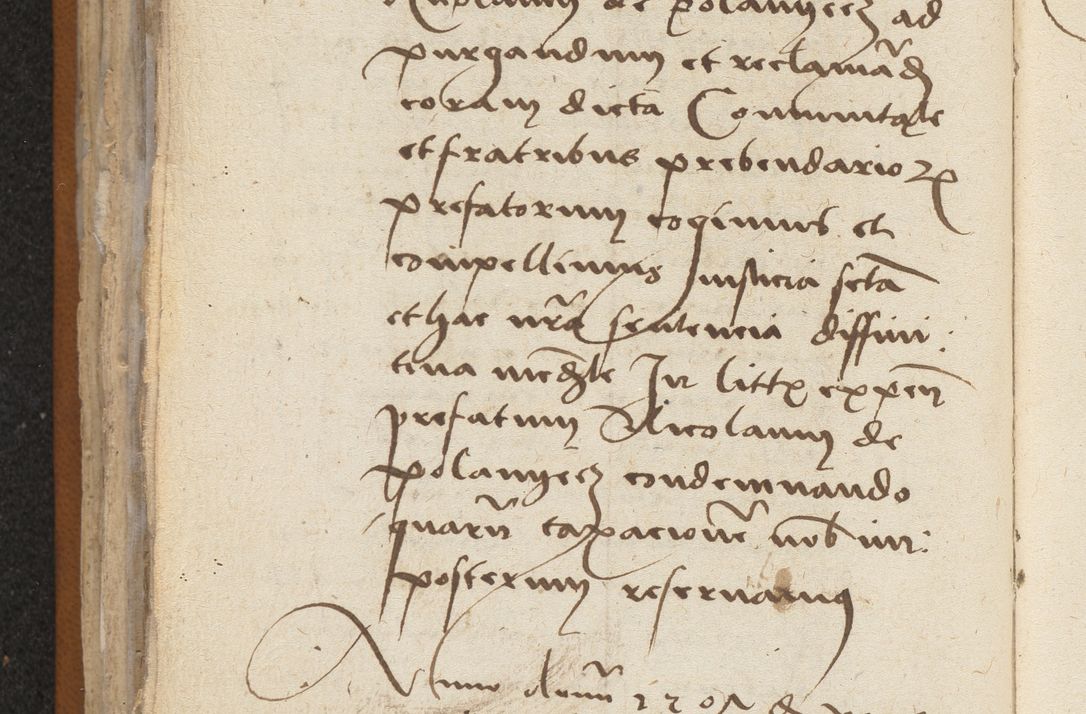 Nicolaum de polangeez ad
purgandum et reclamãd
coram dicta Communitate
et fratribus prebendarioꝝ
prefatorum cogimus et
compellimus Justicia sctã
et hac nrã sentencia diffini:
tiua mediãle In litt expeñ
prefatum Nicolaum de
polangeez condemnando
quarũ taxacionẽ nob im:
posterum reseruamus
Anno domñ